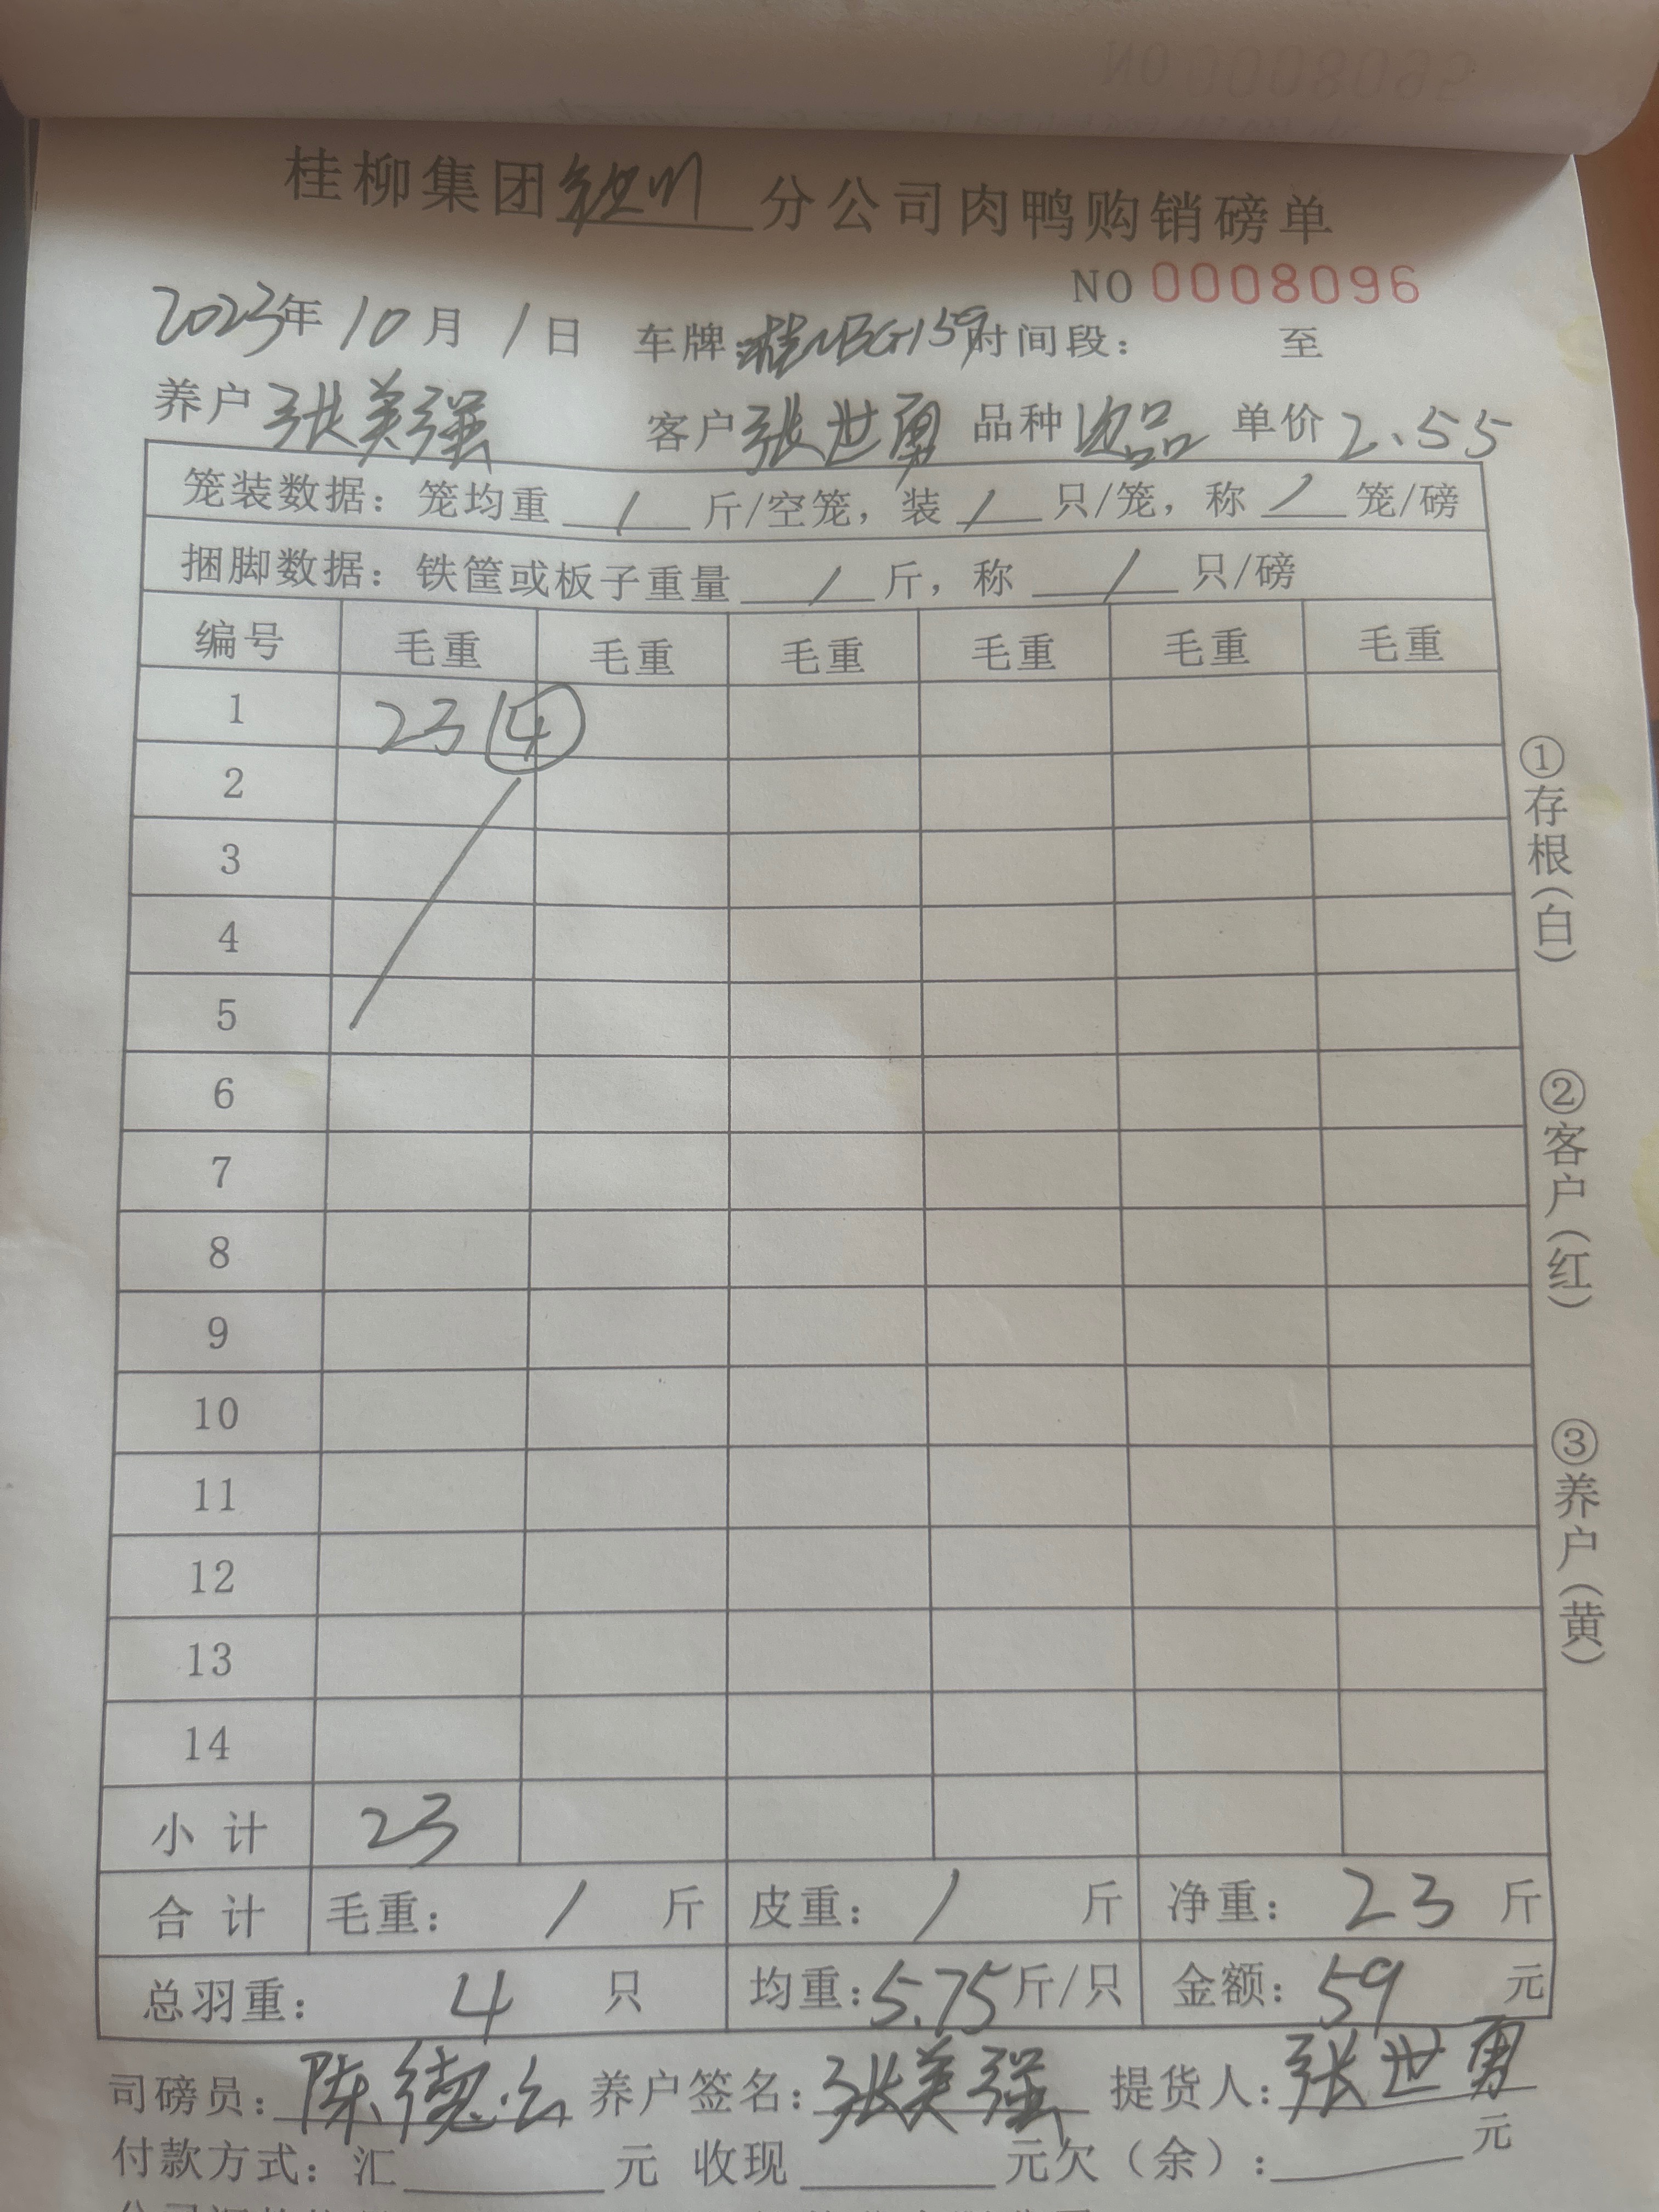 桂柳集团钦州分公司肉鸭购销磅单
NO 0008096
2023年10月1日 车牌: 时间段: 至
养户 张美强 客户 张世勇 品种 次品 单价 2.55
笼装数据: 笼均重 / 斤/空笼, 装 / 只/笼, 称 / 笼/磅
捆脚数据: 铁筐或板子重量 / 斤, 称 / 只/磅
编号 毛重 毛重 毛重 毛重 毛重 毛重
1 23 ④
2
3
4
5
6
7
8
9
10
11
12
13
14
小计 23
合计 毛重: / 斤 皮重: / 斤 净重: 23 斤
总羽重: 4 只 均重: 5.75 斤/只 金额: 59 元
司磅员: 陈德 养户签名: 张美强 提货人: 张世勇
付款方式: 汇 元 收现 元 欠(余): 元
①存根(白)
②客户(红)
③养户(黄)
NO 0008095